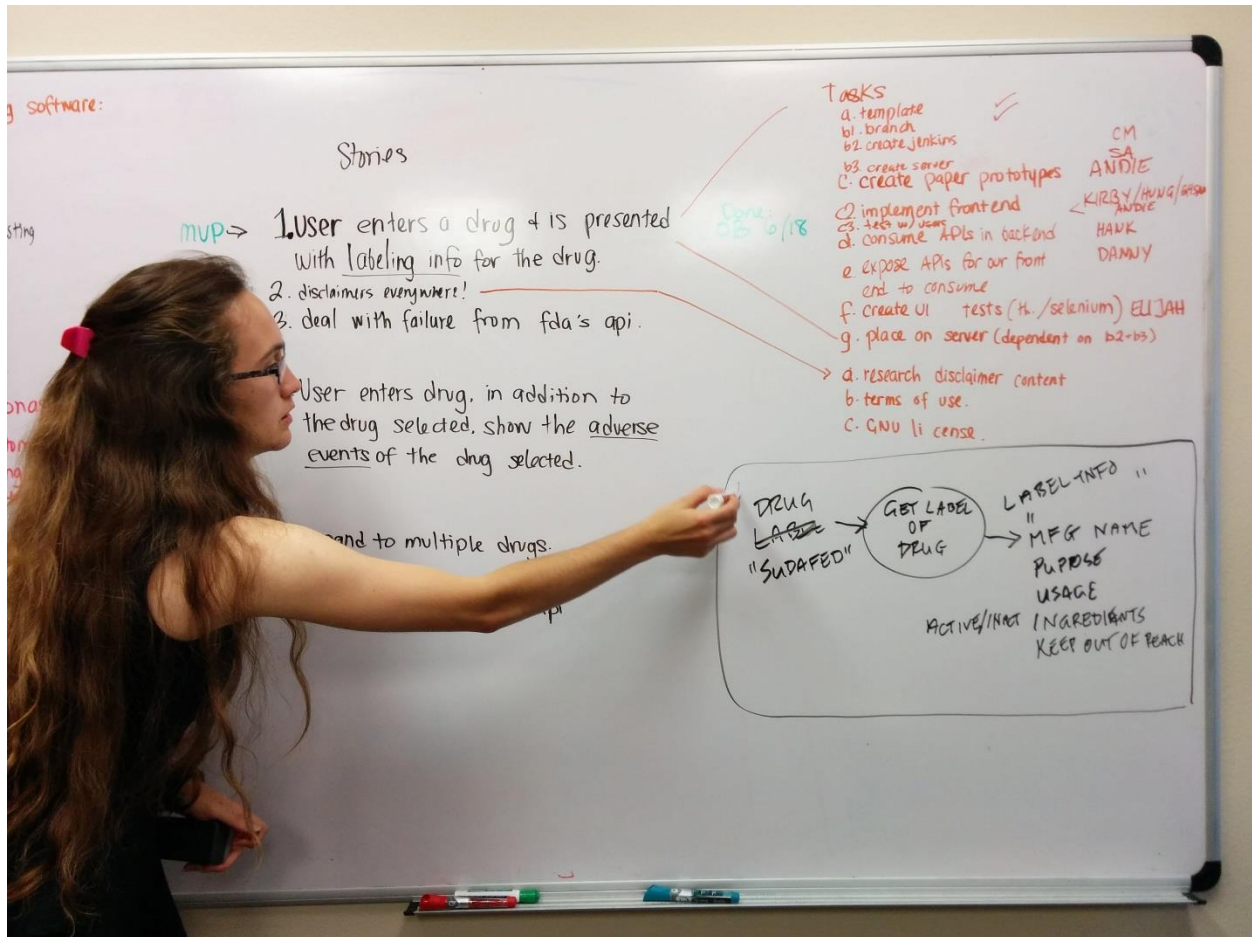 g software:
sting
Stories
MVP → 1. User enters a drug & is presented
with labeling info for the drug.
2. disclaimers everywhere!
3. deal with failure from fda's api.
User enters drug, in addition to
the drug selected, show the adverse
events of the drug selected.
to multiple drugs.
Tasks
a. template
b1. branch
b2 create jenkins
b3. create server
C. create paper prototypes
C2 implement frontend
c3. test w/ users
d. consume APIs in backend
e. expose APIs for our front
end to consume
f. create UI tests (    /selenium) ELIJAH
g. place on server (dependent on b2+b3)
CM
SA
ANDIE
KIRBY/HUNG/
ANDIE
HANK
DANNY
6/18
a. research disclaimer content
b. terms of use.
C. GNU li cense.
DRUG
"SUDAFED"
GET LABEL
OF
DRUG
LABEL INFO "
"
MFG NAME
PUPROSE
USAGE
ACTIVE/INACT INGREDIENTS
KEEP OUT OF REACH